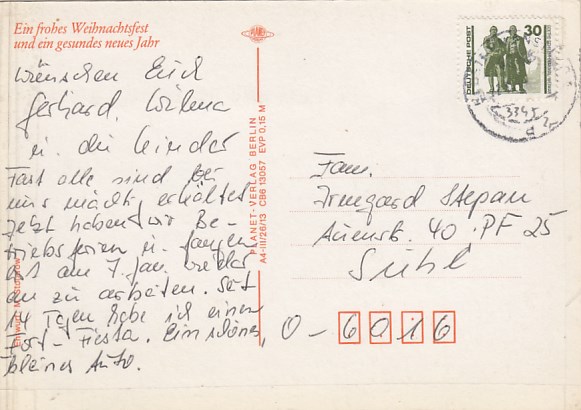 Ein frohes Weihnachtsfest
und ein gesundes neues Jahr
wünschen Euch
Gerhard,
u. die Kinder
Fast alle sind bei
uns mächtig erkältet
Jetzt haben wir Be-
triebsferien u. fangen
erst am 7. Jan. wieder
an zu arbeiten. Seit
14 Tagen habe ich einen
Ford-Fiesta. Ein schönes,
kleines Auto.
PLANET-VERLAG BERLIN
A4-III/26/13 CB6 13057 EVP 0,15 M
PLANET
DEUTSCHE POST
30
Fam.
Irmgard Stepan
40 PF 25
Suhl
O-6016